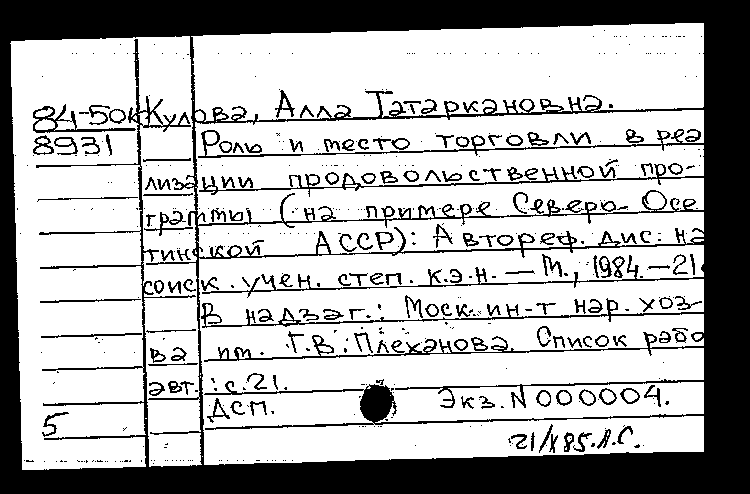 84-50к Кулова, Алла Татаркановна.
8931 Роль и место торговли в реа
лизации продовольственной про-
граммы (на примере Северо-Осе
тинской АССР): Автореф. дис. на
соиск. учен. степ. к.э.н. — М., 1984. — 21
В надзаг.: Моск. ин-т нар. хоз-
ва им. Г.В. Плеханова. Список рабо
авт.: с. 21.
ДСП. Экз. N 000004.
5
21/X 85. Л.С.